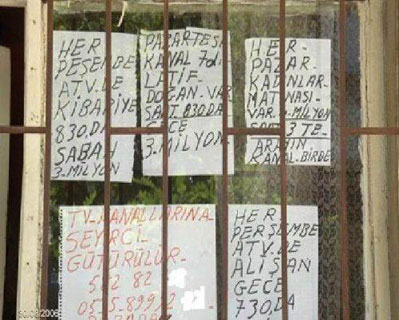 HER
PEŞEMBE
ATV.DE
KİBARİYE
830.DA
SABAH
3.MİLYON
PAZARTESİ
KANAL 7
LATİF
DOĞAN.VAR
SAAT 830.DA
GECE
3.MİLYON-
HER-
PAZAR-
KADINLAR-
MATİNASI-
VAR. MİLYON
SAAT 3 TE-
ARANIN
KANAL.BİRDE
TV-KANALLARINA-
SEYİRCİ-
GÜTÜRÜLÜR-
512 82
05 5-89932
HER
PERŞEMBE
ATV.DE
ALİŞAN
GECE
730.DA
30/08/2006